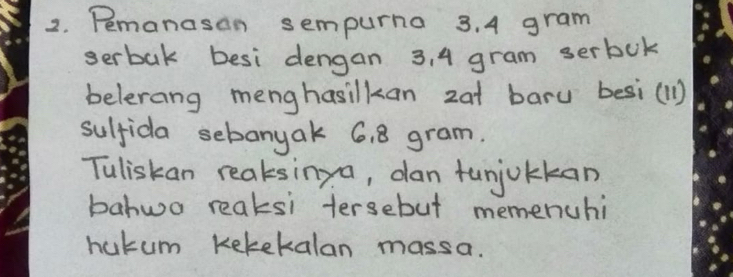 2. Pemanasan sempurna 3.4 gram
serbuk besi dengan 3,4 gram serbuk
belerang menghasilkan zat baru besi (II)
sulfida sebanyak 6,8 gram.
Tuliskan reaksinya, dan tunjukkan
bahwa reaksi tersebut memenuhi
hukum kekekalan massa.